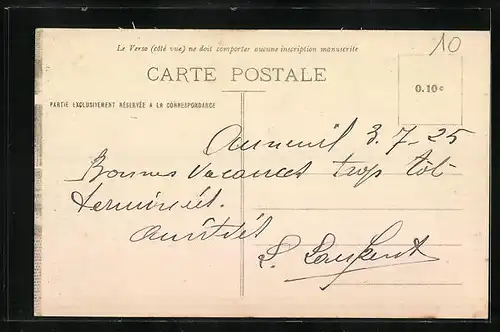 Le Verso (côté vue) ne doit comporter aucune inscription manuscrite
10
CARTE POSTALE
0.10 c
PARTIE EXCLUSIVEMENT RÉSERVÉE A LA CORRESPONDANCE
Auneuil 3.7-25
Bonnes Vacances trop tôt
terminées.
Amitiés